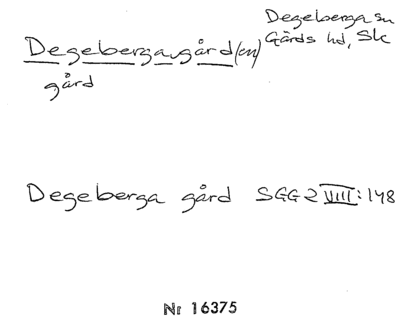 Degeberga sn
Gärds hd, Sk
Degebergagård(en)
gård
Degeberga gård SGG2 VIII:148
Nr 16375